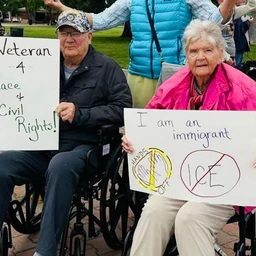 Veteran
4
ace
&
Civil
Rights!
I am an
immigrant
ICE